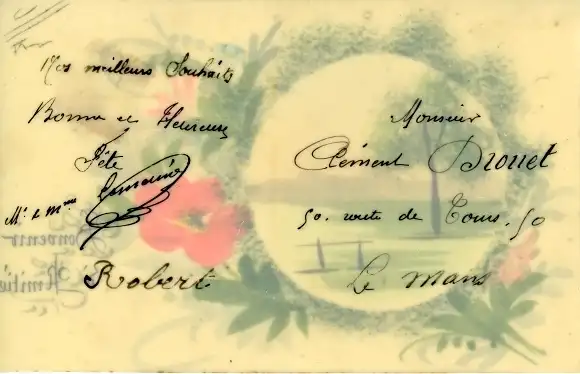 Mes meilleurs Souhaits
Bonne et Heureuse
Fête
Mr & Mme
Robert
Monsieur
Clément Drouet
50. route de Tours. 50
Le Mans
Souvenir
Amitié